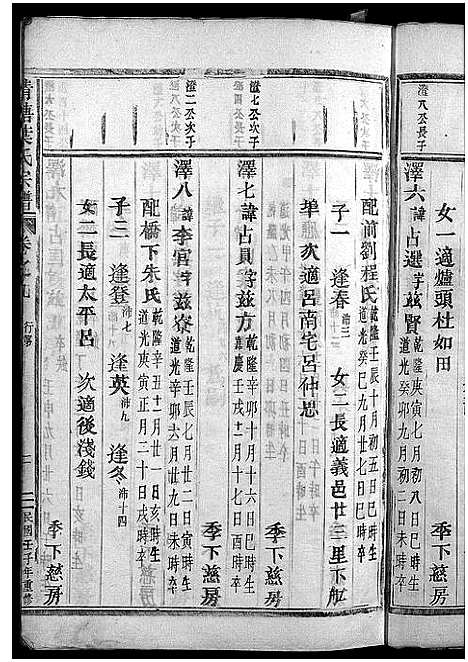 女一適爐頭杜如田
澄八公長子
澤六 諱占選字茲賢 乾隆庚寅七月初八日巳時生 道光癸卯九月初二日未時卒 季下慈房
配前劉程氏 乾隆壬辰十月初五日巳時生 道光癸巳九月廿八日戌時卒
子一 逢春 沛三 女二長適義邑廿三里下舡
埠 次適呂南宅呂仲恩
澄七公次子
澤七 諱占員字茲方 乾隆甲午十月十六日巳時生 嘉慶壬戌十二月十七日酉時卒 季下慈房
澄二公次子
澤八 諱李官字茲寮 乾隆辛卯七月廿二日寅時生 道光辛卯六月廿九日未時卒 季下慈房
配橋下朱氏 乾隆辛丑十二月廿一日亥時生 道光庚寅正月二十日戌時卒
子三 逢登 沛七 逢英 沛九 逢冬 沛十四
女二長適太平呂 次適後淺錢
氏宗譜 卷之九 行第 民國壬子年重修
季下慈房